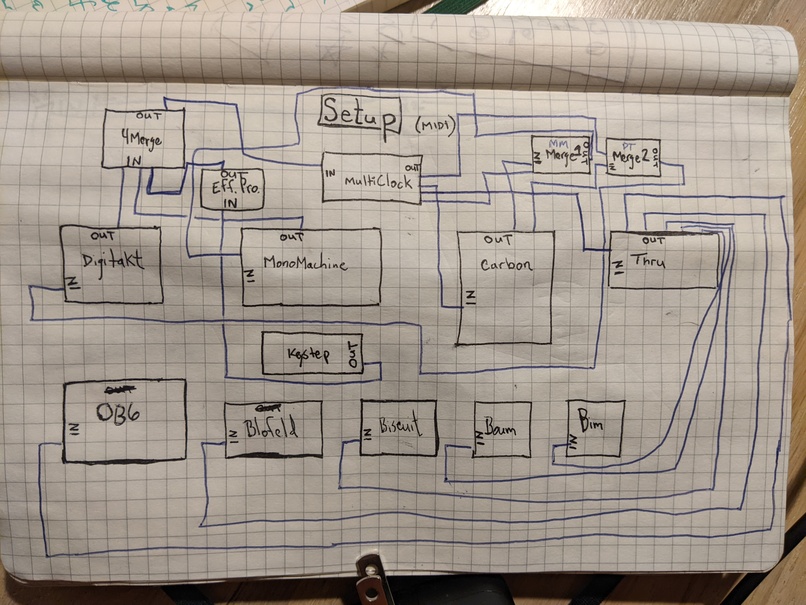 Setup (MIDI)
OUT
4Merge
IN
OUT
Eff. Pro.
IN
IN OUT
MultiClock
MM
IN Merge 1 OUT
PT
IN Merge 2 OUT
OUT
Digitakt
IN
OUT
MonoMachine
IN
OUT
Carbon
IN
OUT
Thru
IN
Keystep OUT
OUT
OB6
IN
Blofeld
IN
Biscuit
IN
Bam
IN
Bim
IN